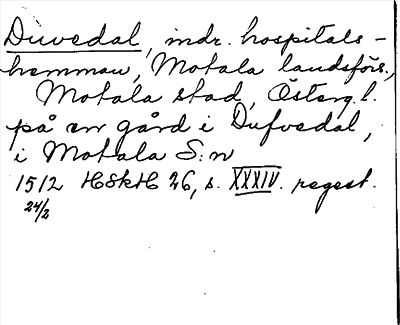 Duvedal, indr. hospitals-
hemman, Motala landsförs.,
Motala stad, Österg.l.
på en gård i Dufvedal,
i Motala S:n
1512 HSkH 26, s. XXXIV. regest.
24/2